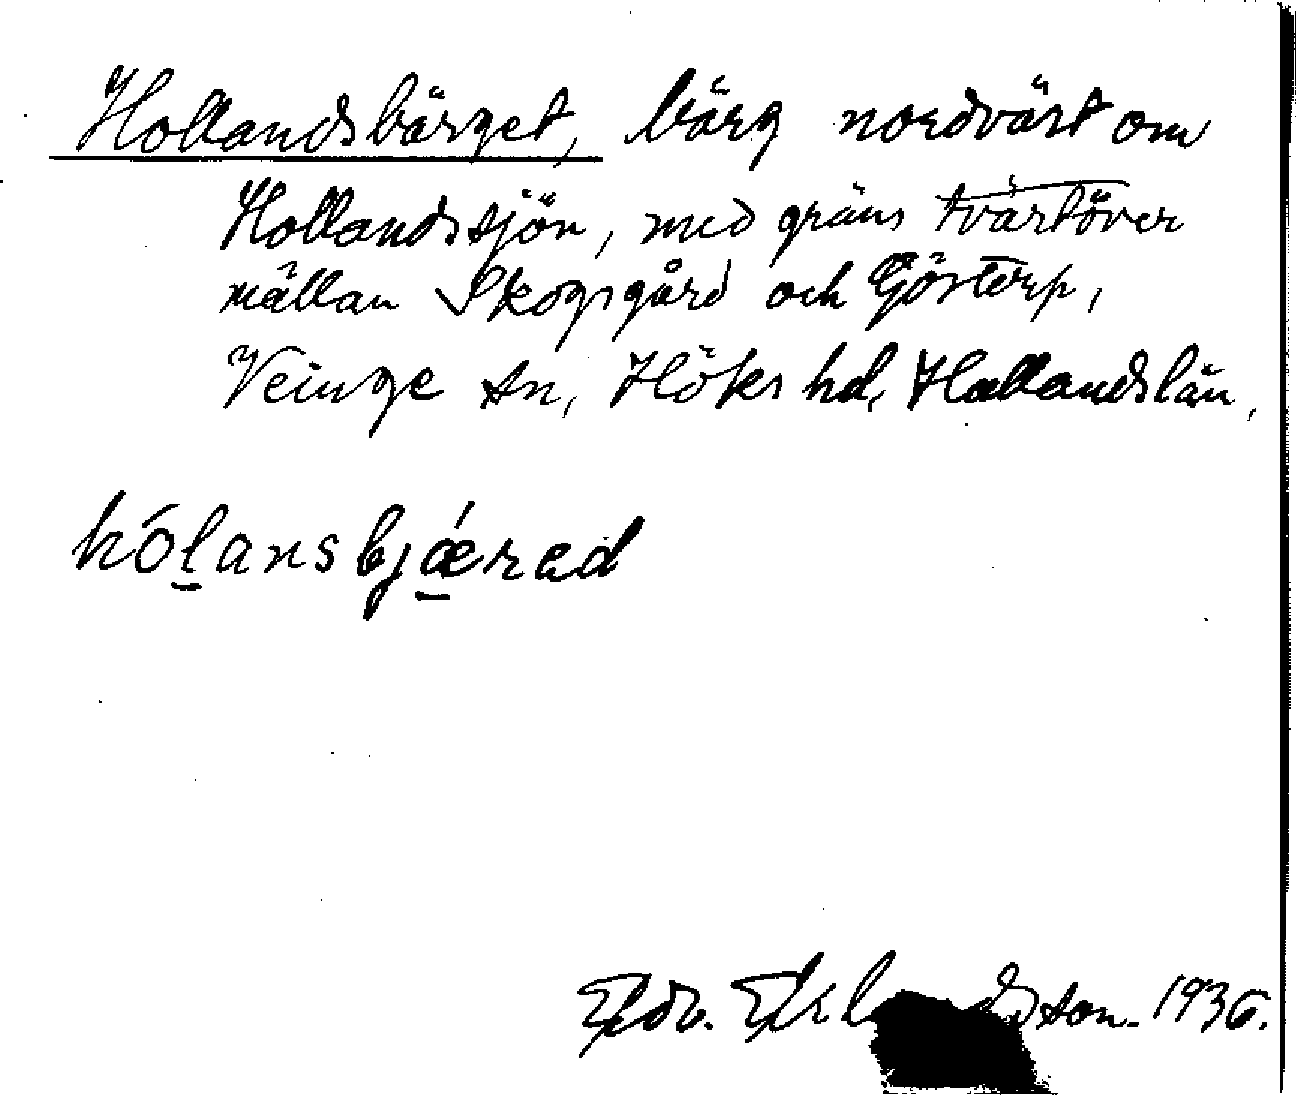 Hollandsbärget, bärg nordväst om
Hollandssjön, med gräns tvärtöver
mällan Skogsgård och Göstorp,
Veinge sn, Höks hd, Hallandslän.
hól̲ansbjǽ̲rad
Edv. 1936.